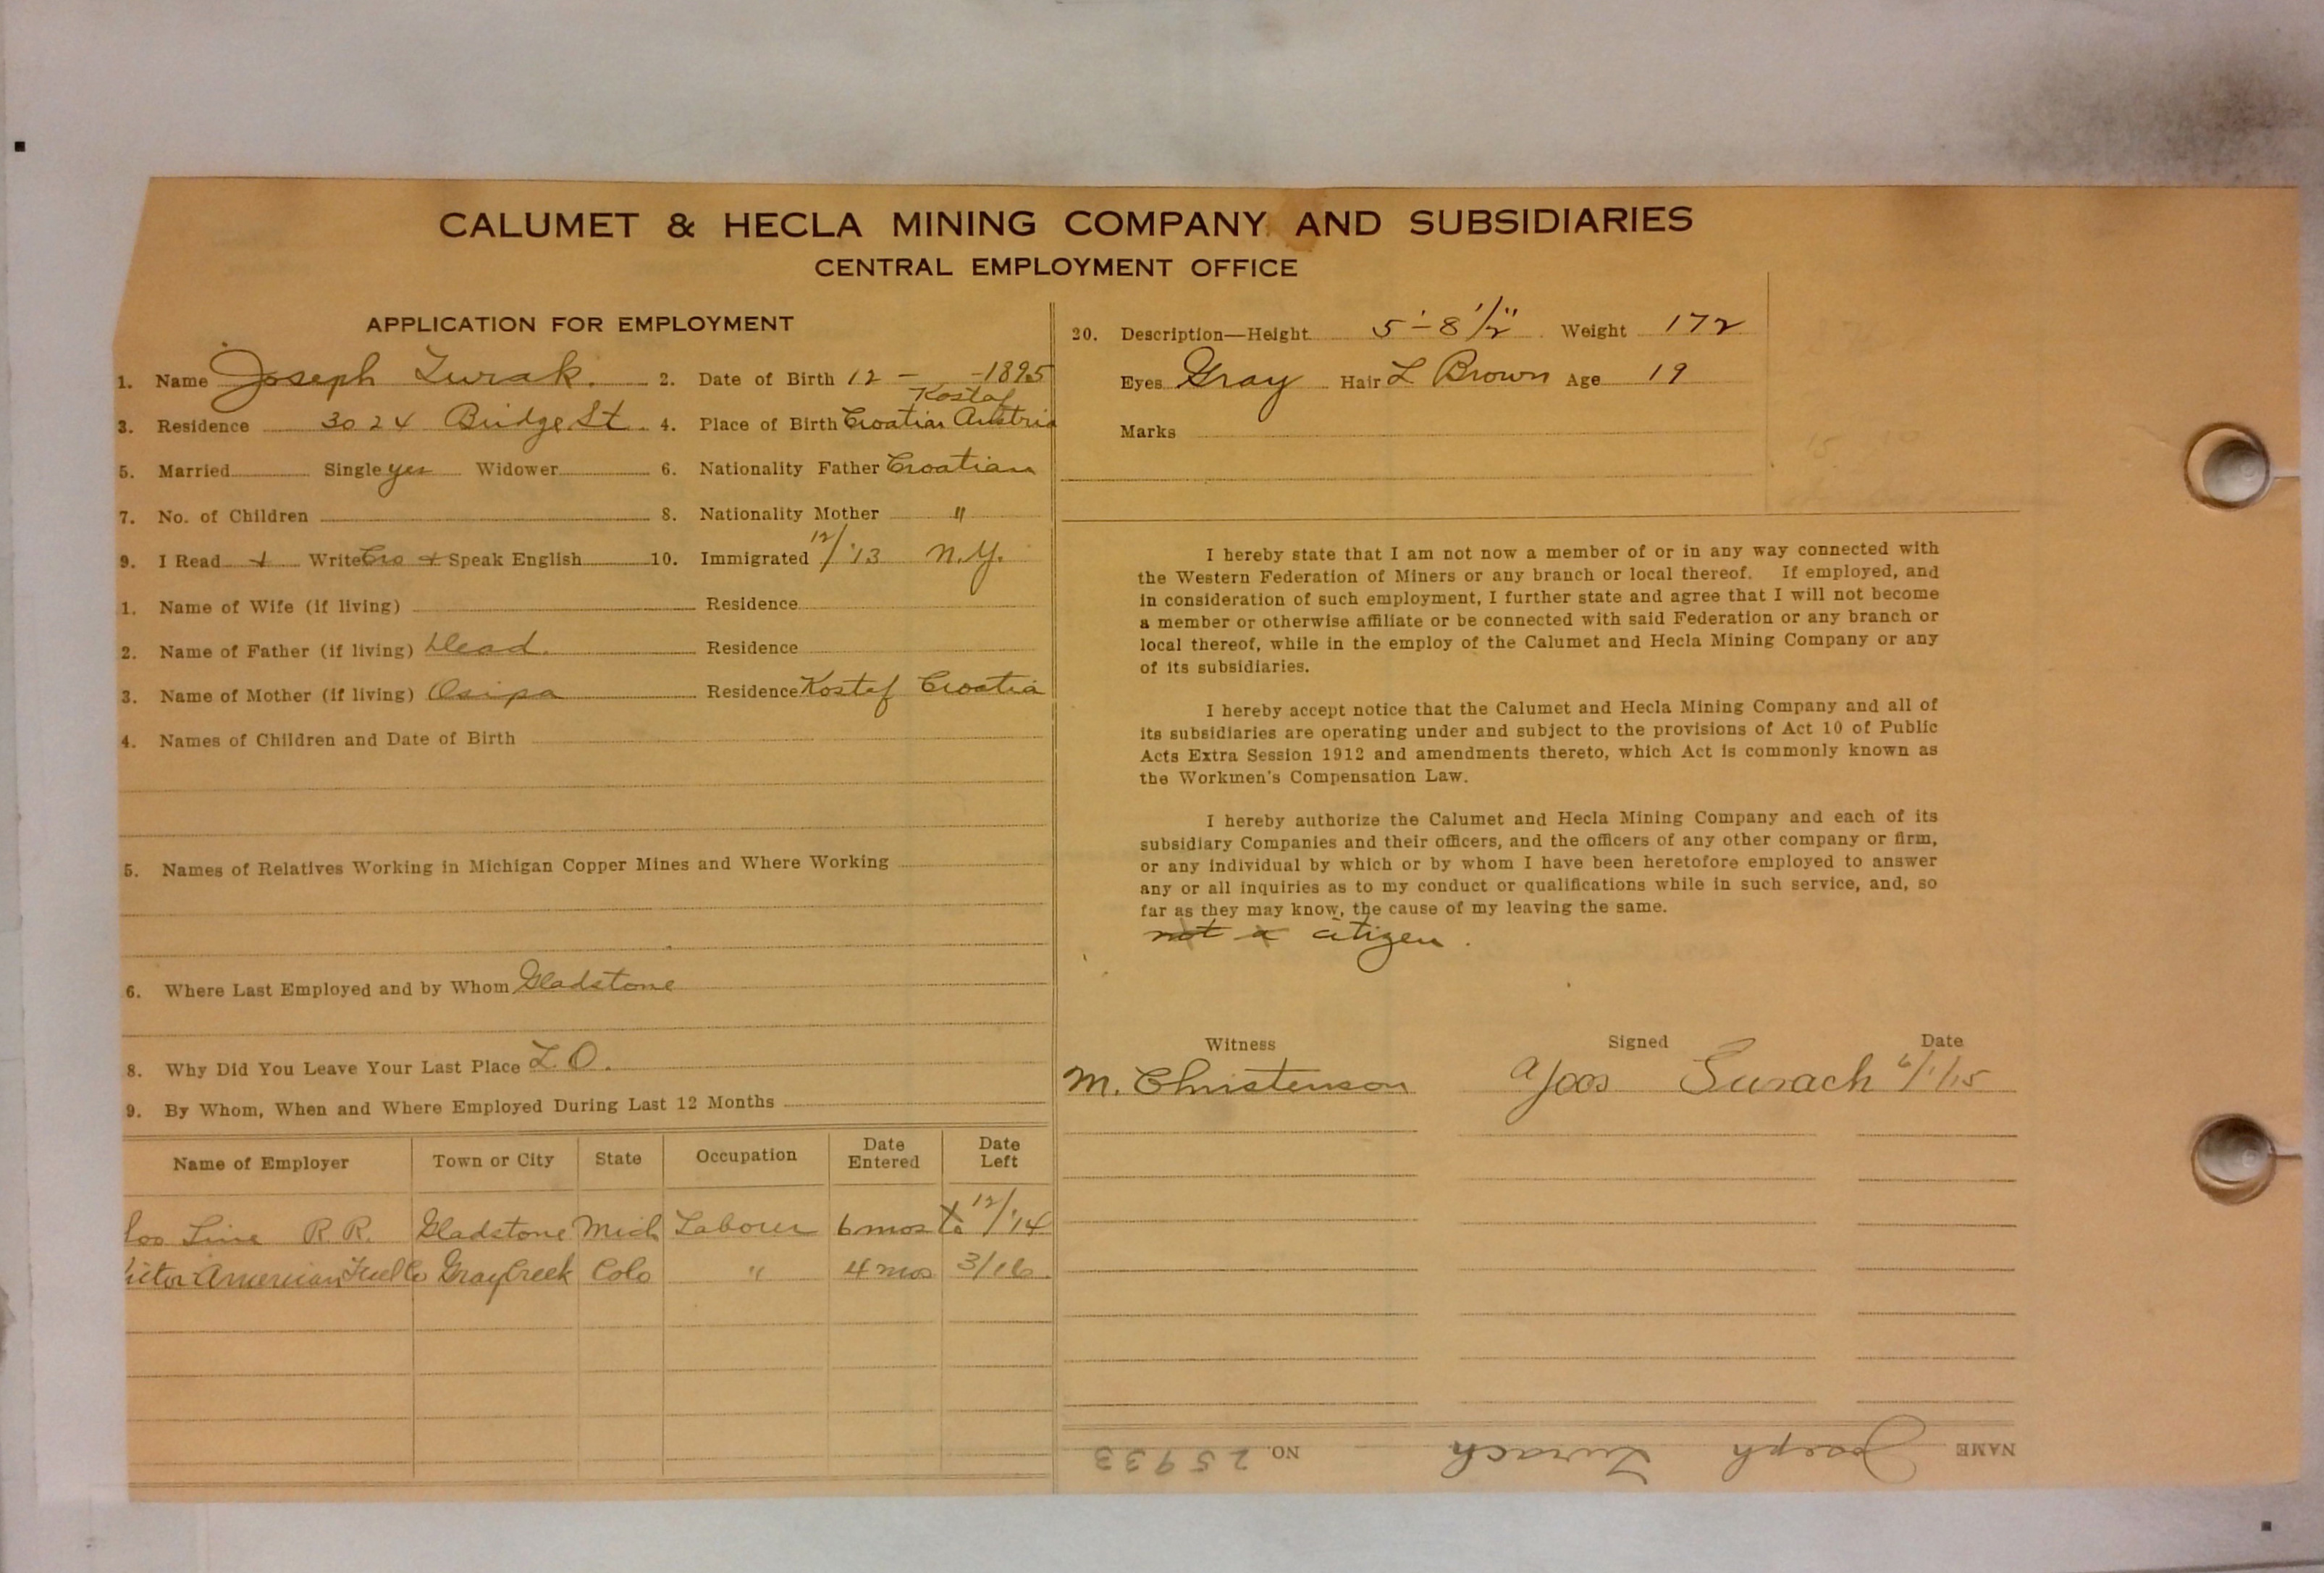 CALUMET & HECLA MINING COMPANY AND SUBSIDIARIES
CENTRAL EMPLOYMENT OFFICE
APPLICATION FOR EMPLOYMENT
1. Name Joseph Zurak. 2. Date of Birth 12 - -1895
3. Residence 3024 Bridge St 4. Place of Birth Kostaf Croatian Austria
5. Married Single yes Widower 6. Nationality Father Croatian
7. No. of Children 8. Nationality Mother "
9. I Read + Write Cro + Speak English 10. Immigrated 12/'13 N.Y.
1. Name of Wife (if living) Residence
2. Name of Father (if living) Dead. Residence
3. Name of Mother (if living) Osipa Residence Kostaf Croatia
4. Names of Children and Date of Birth
5. Names of Relatives Working in Michigan Copper Mines and Where Working
6. Where Last Employed and by Whom Gladstone
8. Why Did You Leave Your Last Place L.O.
9. By Whom, When and Where Employed During Last 12 Months
Name of Employer Town or City State Occupation Date Entered Date Left
Soo Line R.R. Gladstone Mich Labour 6 mos to 12/'14
Victor American Fuel Co Gray Creek Colo " 4 mos 3/16
20. Description—Height 5'-8 1/2" Weight 172
Eyes Gray Hair L Brown Age 19
Marks
I hereby state that I am not now a member of or in any way connected with
the Western Federation of Miners or any branch or local thereof. If employed, and
in consideration of such employment, I further state and agree that I will not become
a member or otherwise affiliate or be connected with said Federation or any branch or
local thereof, while in the employ of the Calumet and Hecla Mining Company or any
of its subsidiaries.
I hereby accept notice that the Calumet and Hecla Mining Company and all of
its subsidiaries are operating under and subject to the provisions of Act 10 of Public
Acts Extra Session 1912 and amendments thereto, which Act is commonly known as
the Workmen's Compensation Law.
I hereby authorize the Calumet and Hecla Mining Company and each of its
subsidiary Companies and their officers, and the officers of any other company or firm,
or any individual by which or by whom I have been heretofore employed to answer
any or all inquiries as to my conduct or qualifications while in such service, and, so
far as they may know, the cause of my leaving the same.
not a citizen.
Witness Signed Date
M. Christenson Joos Surach 6/1/15
NAME Joseph Zurach NO. 25933